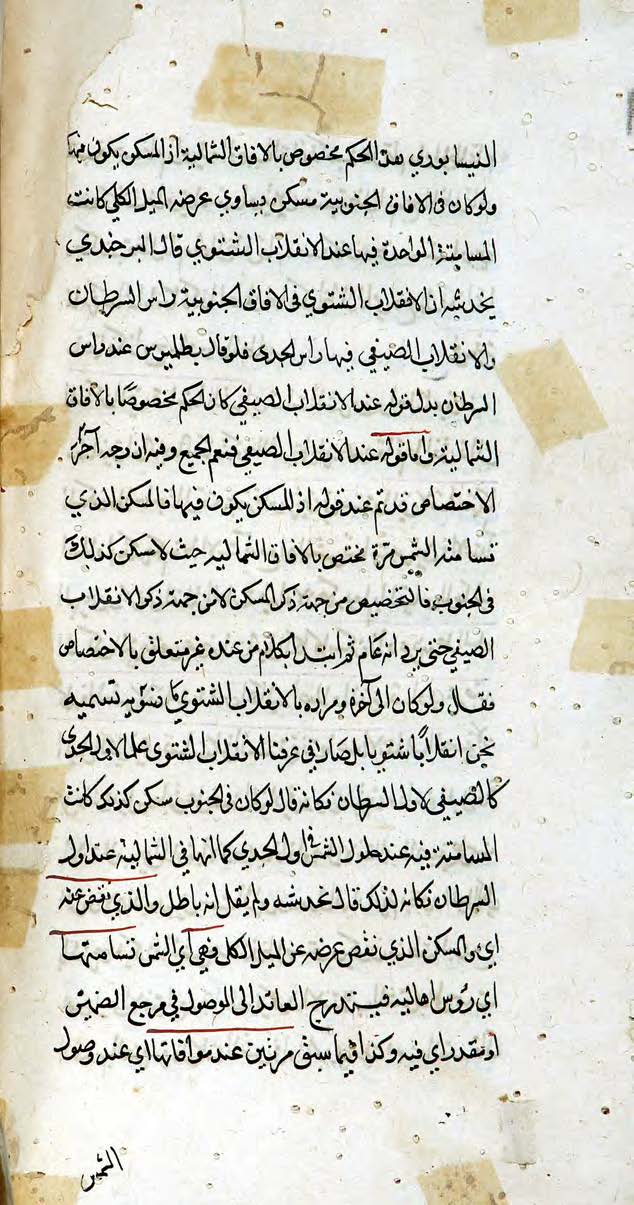 النيسابوري هذا الحكم مخصوص بالافاق الشمالية اذ المسكن يكون فيها
ولو كان في الافاق الجنوبية مسكن يساوي عرضه الميل الكلي كانت
المسامتة الواحدة فيها عند الانقلاب الشتوي قال البرجندي
يخدشه ان الانقلاب الشتوي في الافاق الجنوبية راس السرطان
والانقلاب الصيفي فيها راس الجدي فلو قال بطلميوس عند راس
السرطان بدل قوله عند الانقلاب الصيفي كان الحكم مخصوصا بالافاق
الشمالية واما قوله عند الانقلاب الصيفي فنعم الجميع وفيه ان وجه آخر
الاختصاص قد تم عند قوله اذ المسكن يكون فيها فالمسكن الذي
تسامته الشمس مرة مختص بالافاق الشمالية حيث لا مسكن كذلك
في الجنوب فالتخصيص من جهة ذكر المسكن لا من جهة ذكر الانقلاب
الصيفي حتى يرد انه عام ثم ابتدا بكلام من عنده غير متعلق بالاختصاص
فقال ولو كان الى آخره ومراده بالانقلاب الشتوي تسميه
نحن انقلابا شتويا بل صار في عرفنا الانقلاب الشتوي علما لاول الجدي
كالصيفي لاول السرطان فكانه قال لو كان في الجنوب سكن كذلك كانت
المسامتة فيه عند حلول الشمس في اول الجدي كما انها في الشمالية عند اول
السرطان فكانه لذلك قال نخدشه ولم يقل انه باطل والذي نقص عنه
اي والمسكن الذي نقص عرضه عن الميل الكلي فهي اي الشمس تسامتها
اي رؤس اهاليه فيندرج العائد الى الموصول في مرجع الضمير
او مقدر اي فيه وكذا فيما سبق مرتين عند موافاتها اي عند وصول
الشمس